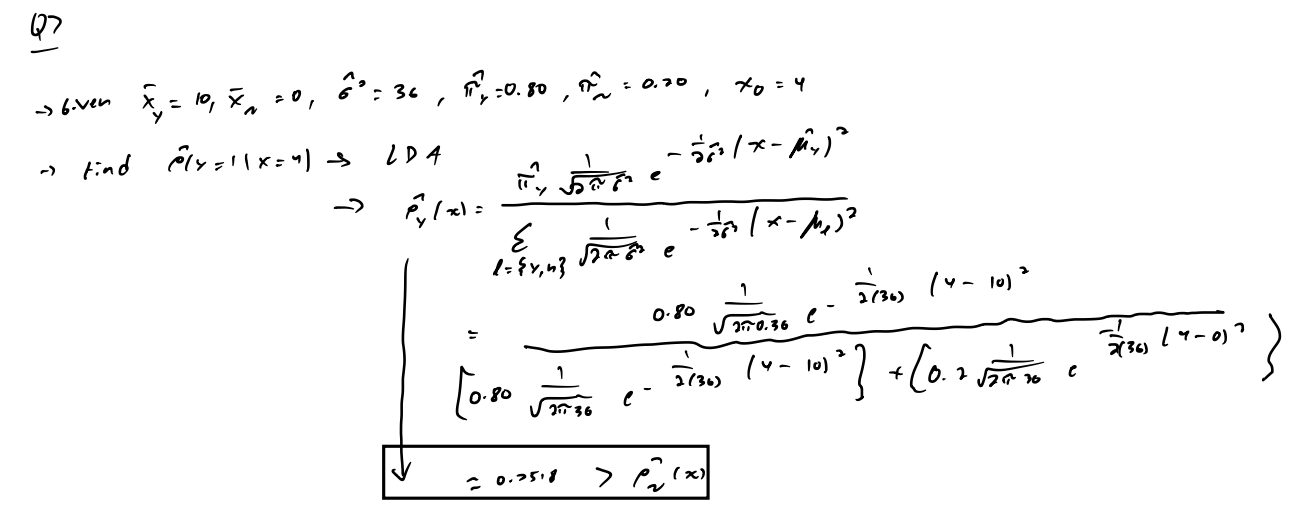 Q7
→ Given x̄_y = 10, x̄_n = 0, σ̂² = 36, π̂_y = 0.80, π̂_n = 0.20, x_0 = 4
→ Find p̂(Y=1|X=4) → LDA
→ p̂_y(x) = π̂_y 1/√(2πσ̂²) e^(-1/2σ̂² (x-μ̂_y)²) / Σ_{l={y,n}} 1/√(2πσ̂²) e^(-1/2σ̂² (x-μ_l)²)
= 0.80 1/√(2π0.36) e^(-1/2(36) (4-10)²) / [0.80 1/√(2π36) e^(-1/2(36) (4-10)²)} + [0.2 1/√(2π 36) e^(-1/2(36) (4-0)²)}
= 0.7518 > p̂_n(x)